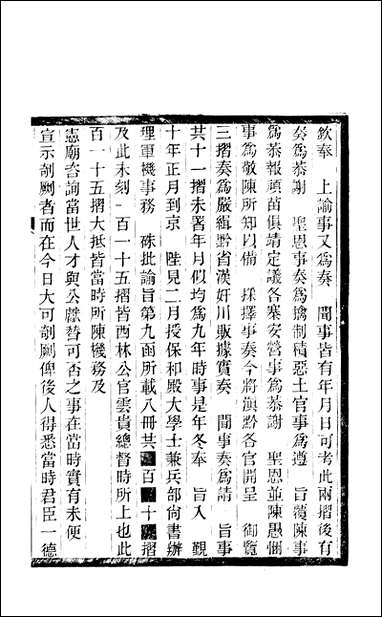 欽奉　上諭事又爲奏　聞事皆有年月日可考此兩摺後有
奏爲恭謝　聖恩事奏爲擒制積惡土官事爲遵　旨覆陳事
爲恭報頑苗俱靖定議各寨安營事爲恭謝　聖恩並陳愚悃
事爲敬陳所知以備　採擇事奏今將滇黔各官開呈　御覽
三摺奏爲嚴緝黔省漢奸川販據實奏　聞事奏爲請　旨事
共十一摺未署年月似均爲九年時事是年冬奉　旨入　覲
十年正月到京　陛見二月授保和殿大學士兼兵部尚書辦
理軍機事務　硃批諭旨第九函所載八冊共百十摺
及此未刻一百一十五摺皆西林公官雲貴總督時所上也此
百一十五摺大抵皆當時所陳機務及
憲廟咨詢當世人才與公獻替可否之事在當時實有未便
宣示剞劂者而在今日大可剞劂俾後人得悉當時君臣一德